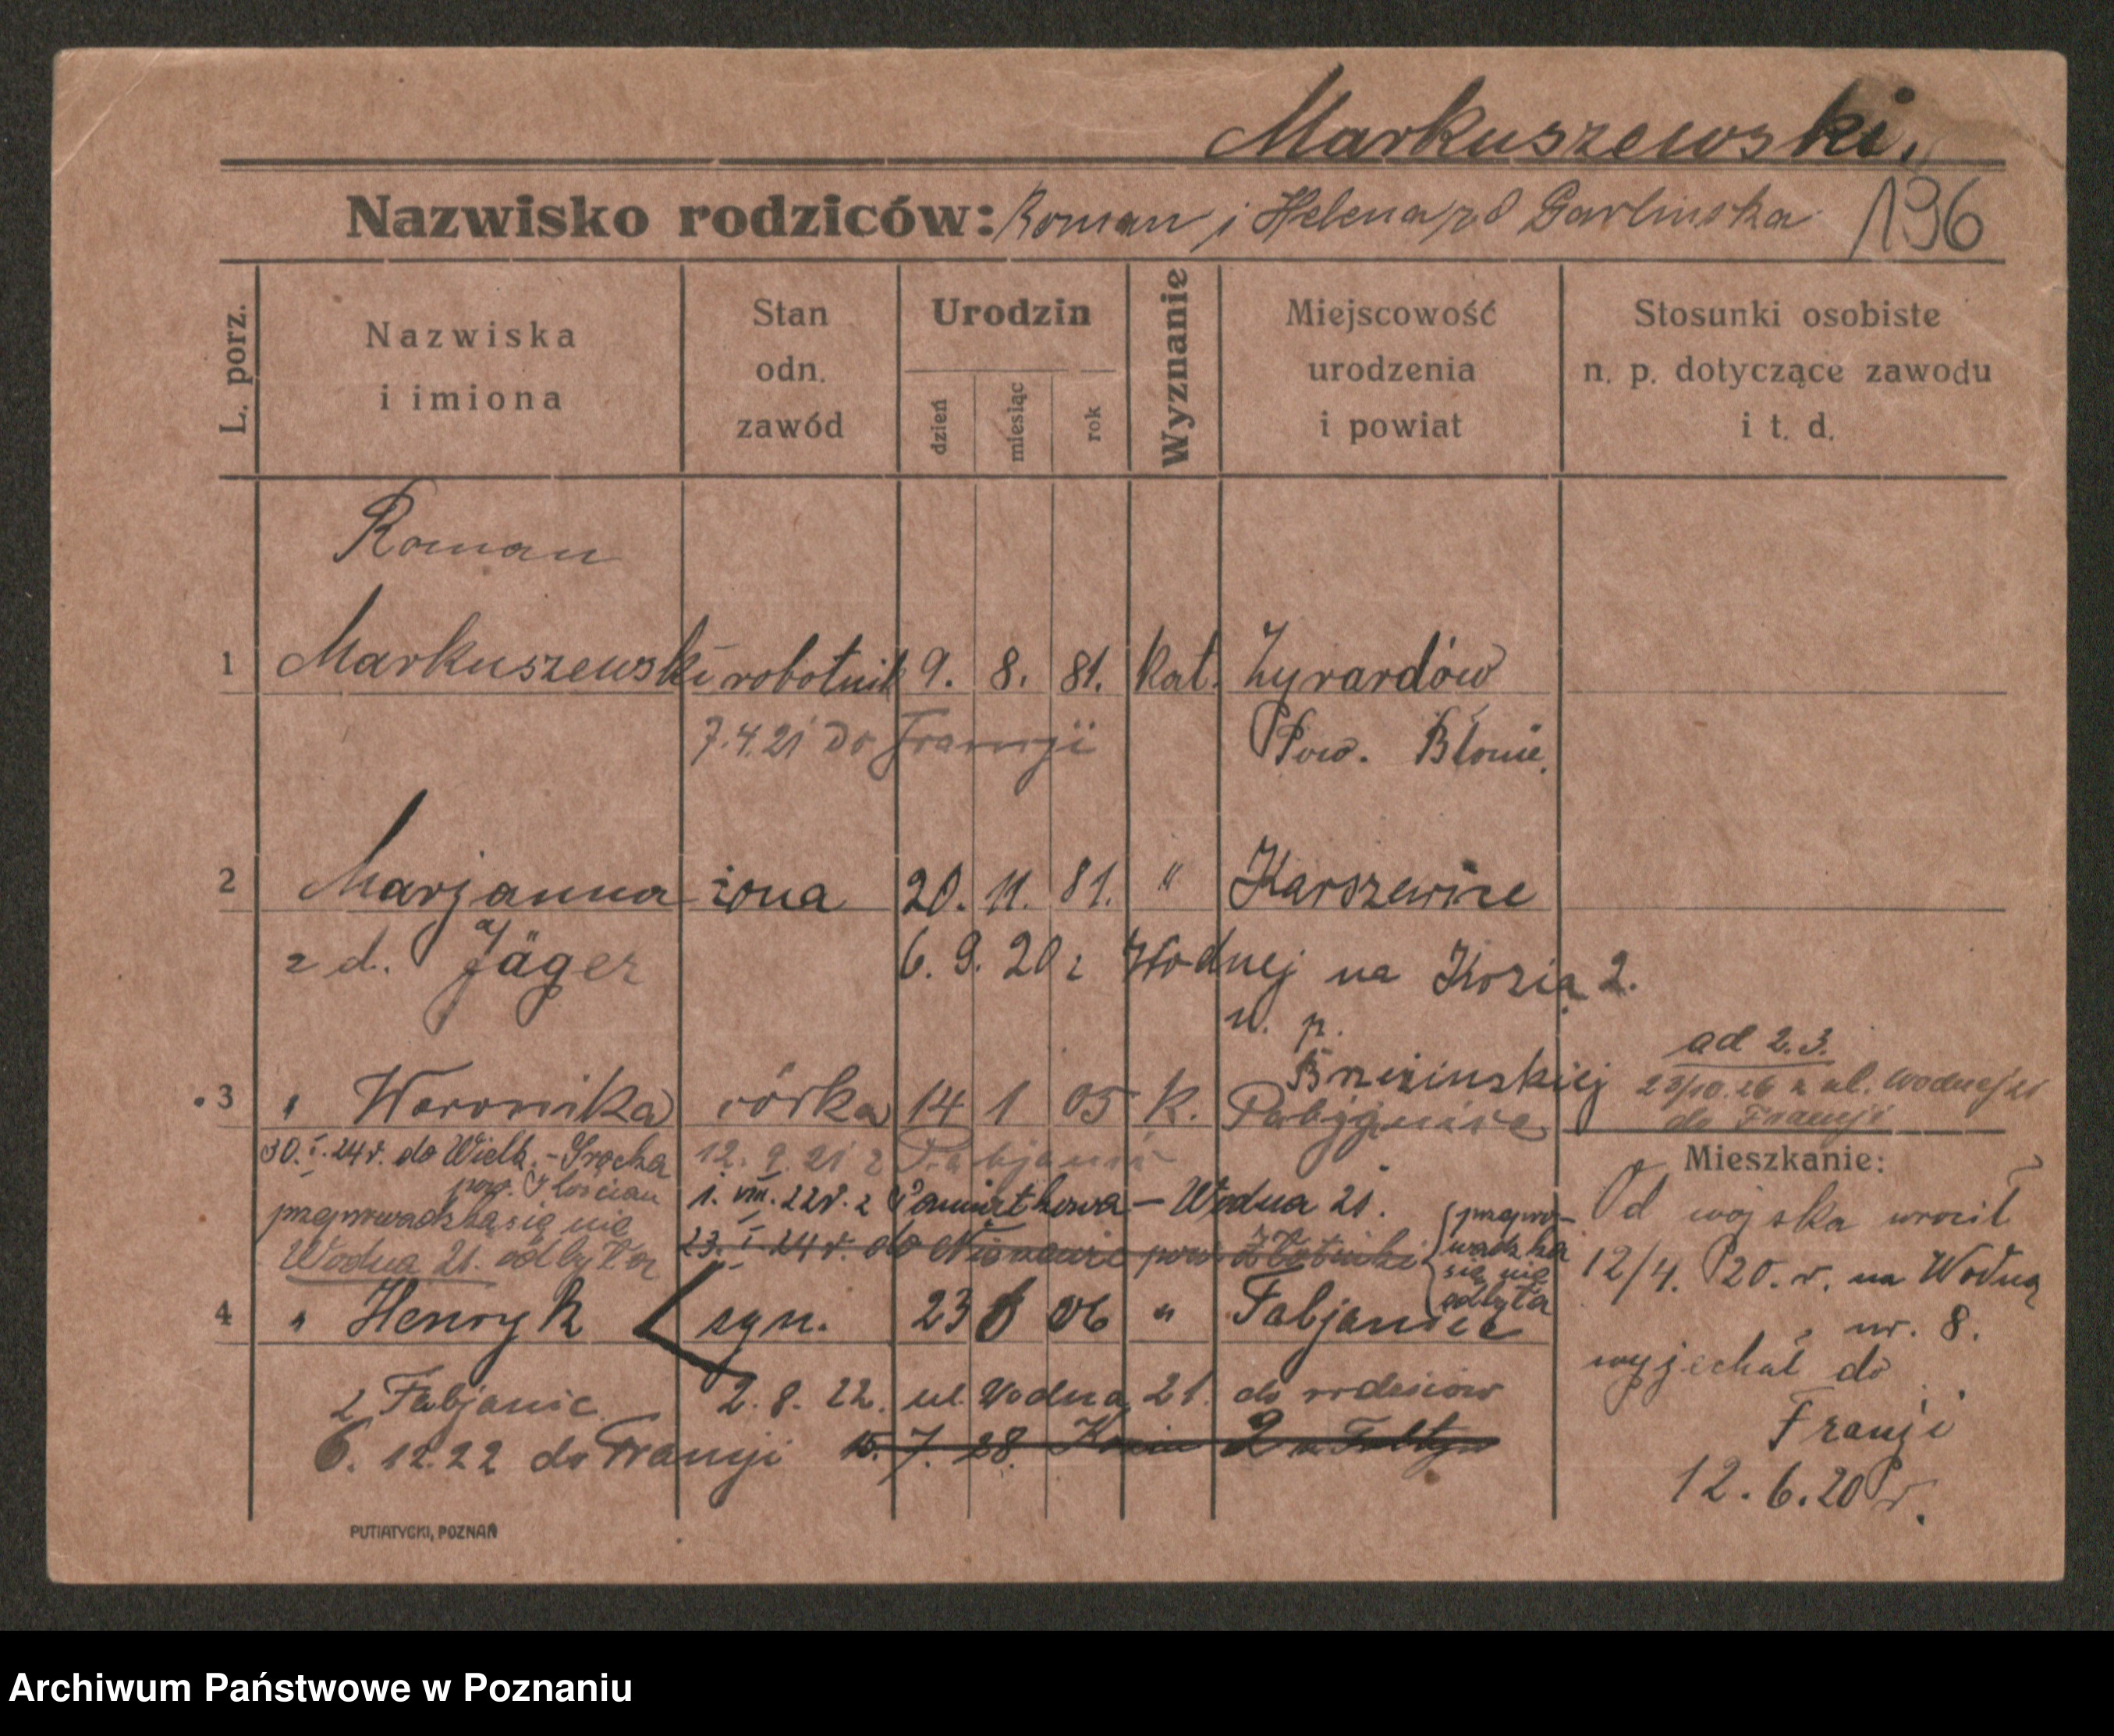 Markuszewski.
Nazwisko rodziców: Roman i Helena zd Garlinska 196
L. porz.
Nazwiska i imiona
Stan odn. zawód
Urodzin
dzień
miesiąc
rok
Wyznanie
Miejscowość urodzenia i powiat
Stosunki osobiste n. p. dotyczące zawodu i t. d.
Roman
1 Markuszewski robotnik 9. 8. 81. kat. Żyrardów
7.4.21 do Francji Pow. Błonie.
2 Marjanna żona 20. 11. 81. " Karszewice
z d. Jäger 6. 9. 20 z Wodnej na Kozią 2.
u. p.
Brzezinskiej
ad 2.3.
3 " Weronika córka 14 1 05 k. Pabjanice
28/10.26 z ul. Wodnej 21
do Francji
30. I. 24 r. do Wielk. - Srocka
pow. Kościan
przeprowadzka się nie
Wodna 21. odbyła
12. 9. 21 z Pabjanic
1. VIII. 22 r. z - Wodna 21.
23. I. 24 r. do pow.
przepro-
wadzka
się nie
odbyła
4 " Henryk syn. 23 6 06 " Pabjanice
z Pabjanic 2. 8. 22. ul. Wodna 21. do rodziców
6. 12.22 do Francji 15. 7. 28. 2
Mieszkanie:
Od wojska wrócił
12/4. 20. r. na Wodną
nr. 8.
wyjechał do
Francji
12. 6. 20 r.
PUTIATYCKI, POZNAŃ
Archiwum Państwowe w Poznaniu